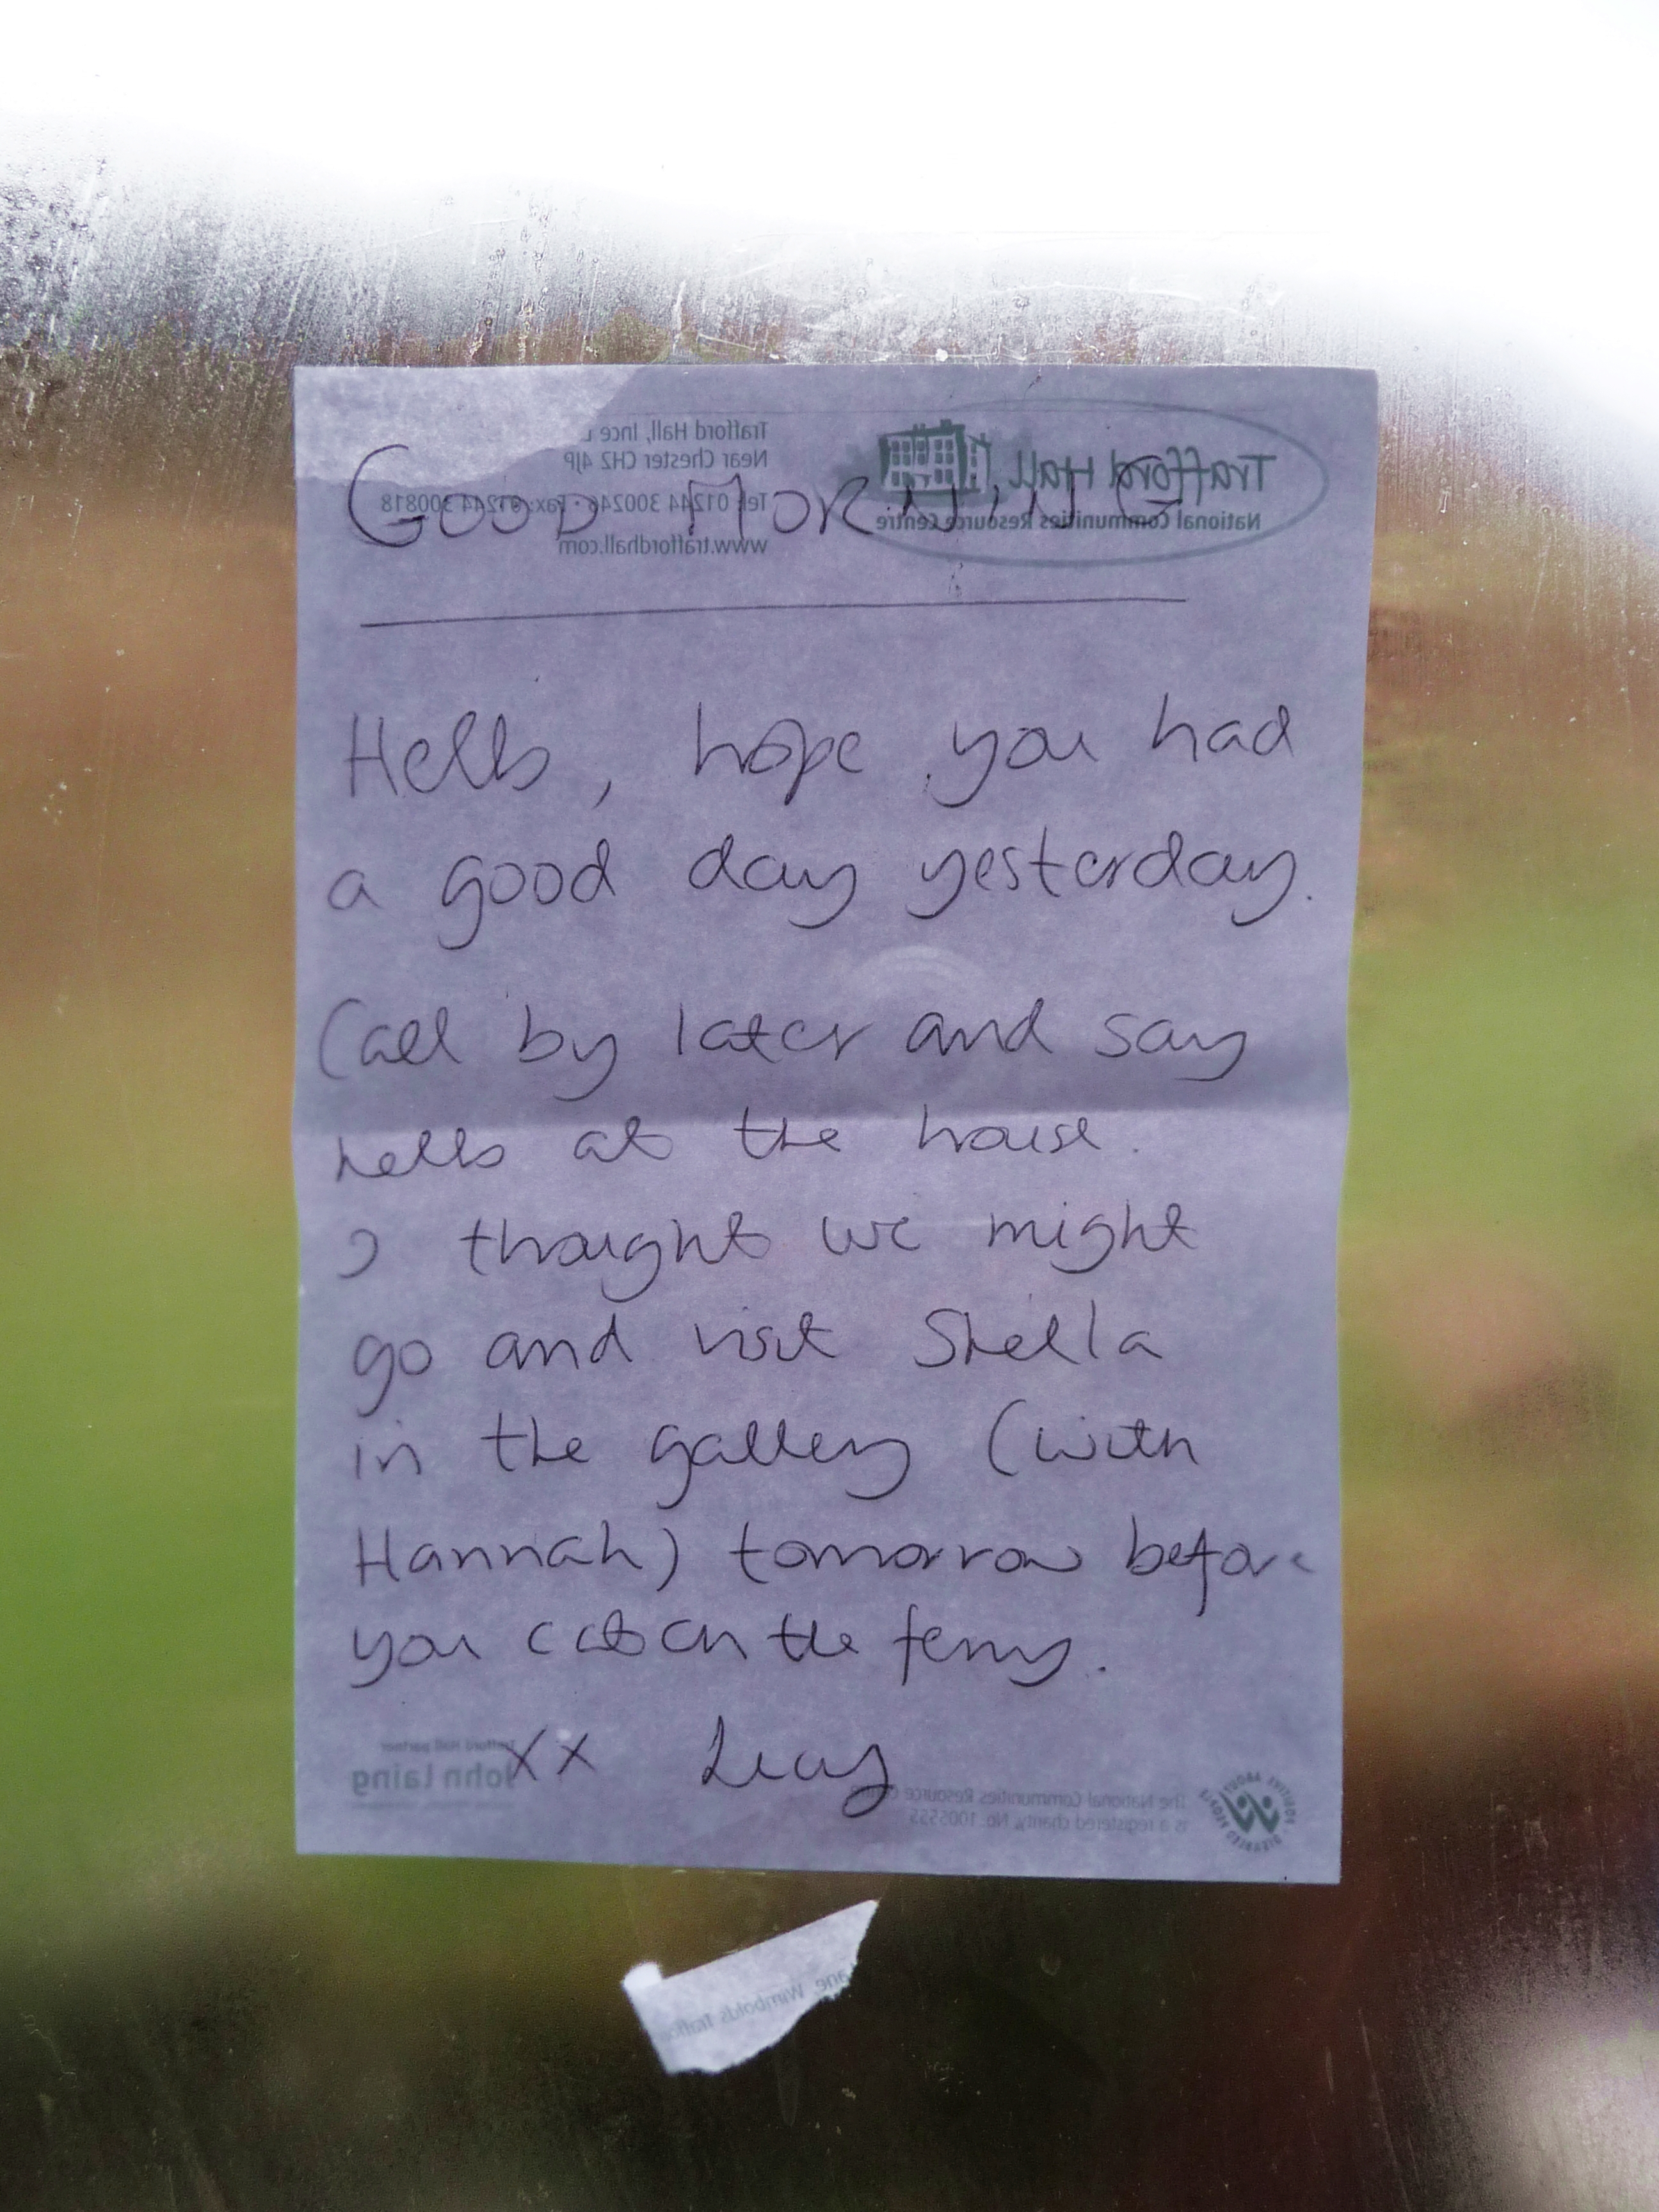 GOOD MORNING
Hello, hope you had
a good day yesterday.
Call by later and say
hello at the house.
I thought we might
go and visit Shella
in the gallery (with
Hannah) tomorrow before
you catch the ferry.
xx Lucy
Trafford Hall
National Communities Resource Centre
Trafford Hall, Ince
Near Chester CH2 4JP
Tel: 01244 300246 · Fax: 01244 300818
www.traffordhall.com
Trafford Hall partner
John Laing
The National Communities Resource Centre
is a registered charity, No: 1005555
POSITIVE ABOUT DISABLED PEOPLE
Lane, Wimbolds Traffo